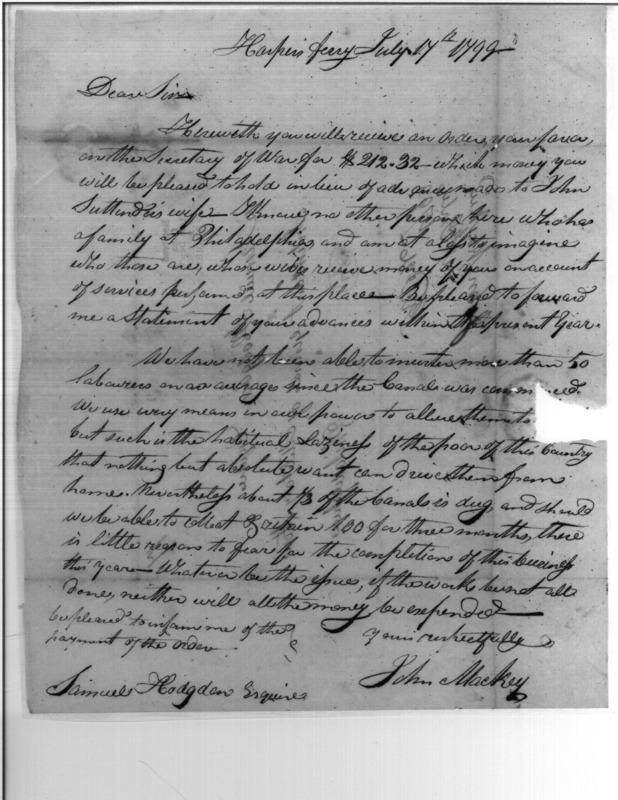 Harpers ferry July 17th 1799
Dear Sir
Herewith you will receive an order, your favor,
on the Secretary of War for $212.32 — which money you
will be pleased to hold in lieu of advances made to John
wife — I know no other person here who has
a family at Philadelphia, and am at a loss to imagine
who those are, whom will receive money of you on account
of services performed at this place — be pleased to forward
me a Statement of your advances within the present Year.
We have not been able to muster more than 50
labourers on an average since the Canal was commenced.
We use every means in our power to allure them
but such is the habitual Laziness of the poor of this Country
that nothing but absolute want can drive them from
home. Nevertheless about 1/3 of the Canal is dug, and should
we be able to 100 for three months, there
is little reason to fear for the completion of this business
this year — Whatever be the issue, if the work be not all
done, neither will all the money be expended —
be pleased to inform me of the
payment of the order
Yours respectfully
John Mackey
Samuel Hodgdon Esquire